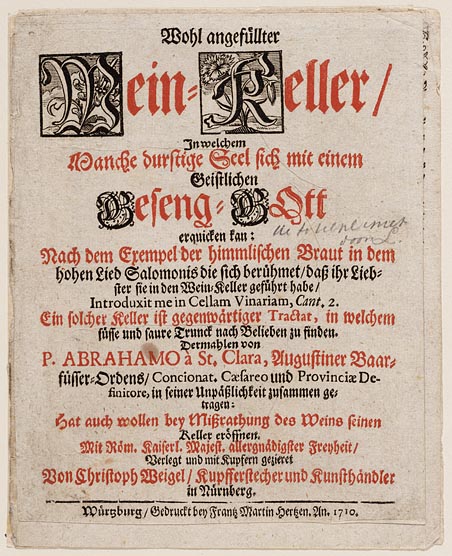 Wohl angefüllter
Wein-Keller/
In welchem
Manche durstige Seel sich mit einem
Geistlichen
Geseng-GOtt
erquicken kan:
Nach dem Exempel der himmlischen Braut in dem
hohen Lied Salomonis die sich berühmet/daß ihr Lieb-
ster sie in den Wein-Keller geführt habe/
Introduxit me in Cellam Vinariam, Cant. 2.
Ein solcher Keller ist gegenwärtiger Tractat, in welchem
süsse und saure Trunck nach Belieben zu finden.
Dermahlen von
P. ABRAHAMO à St. Clara, Augustiner Baar-
füsser-Ordens/ Concionat. Cæsareo und Provinciæ De-
finitore, in seiner Unpäßlichkeit zusammen ge-
tragen:
Hat auch wollen bey Mißrathung des Weins seinen
Keller eröffnen.
Mit Röm. Kaiserl. Majest. allergnädigster Freyheit/
Verlegt und mit Kupfern gezieret
Von Christoph Weigel/ Kupfferstecher und Kunsthändler
in Nürnberg.
Würtzburg/ Gedruckt bey Frantz Martin Hertzen. An. 1710.